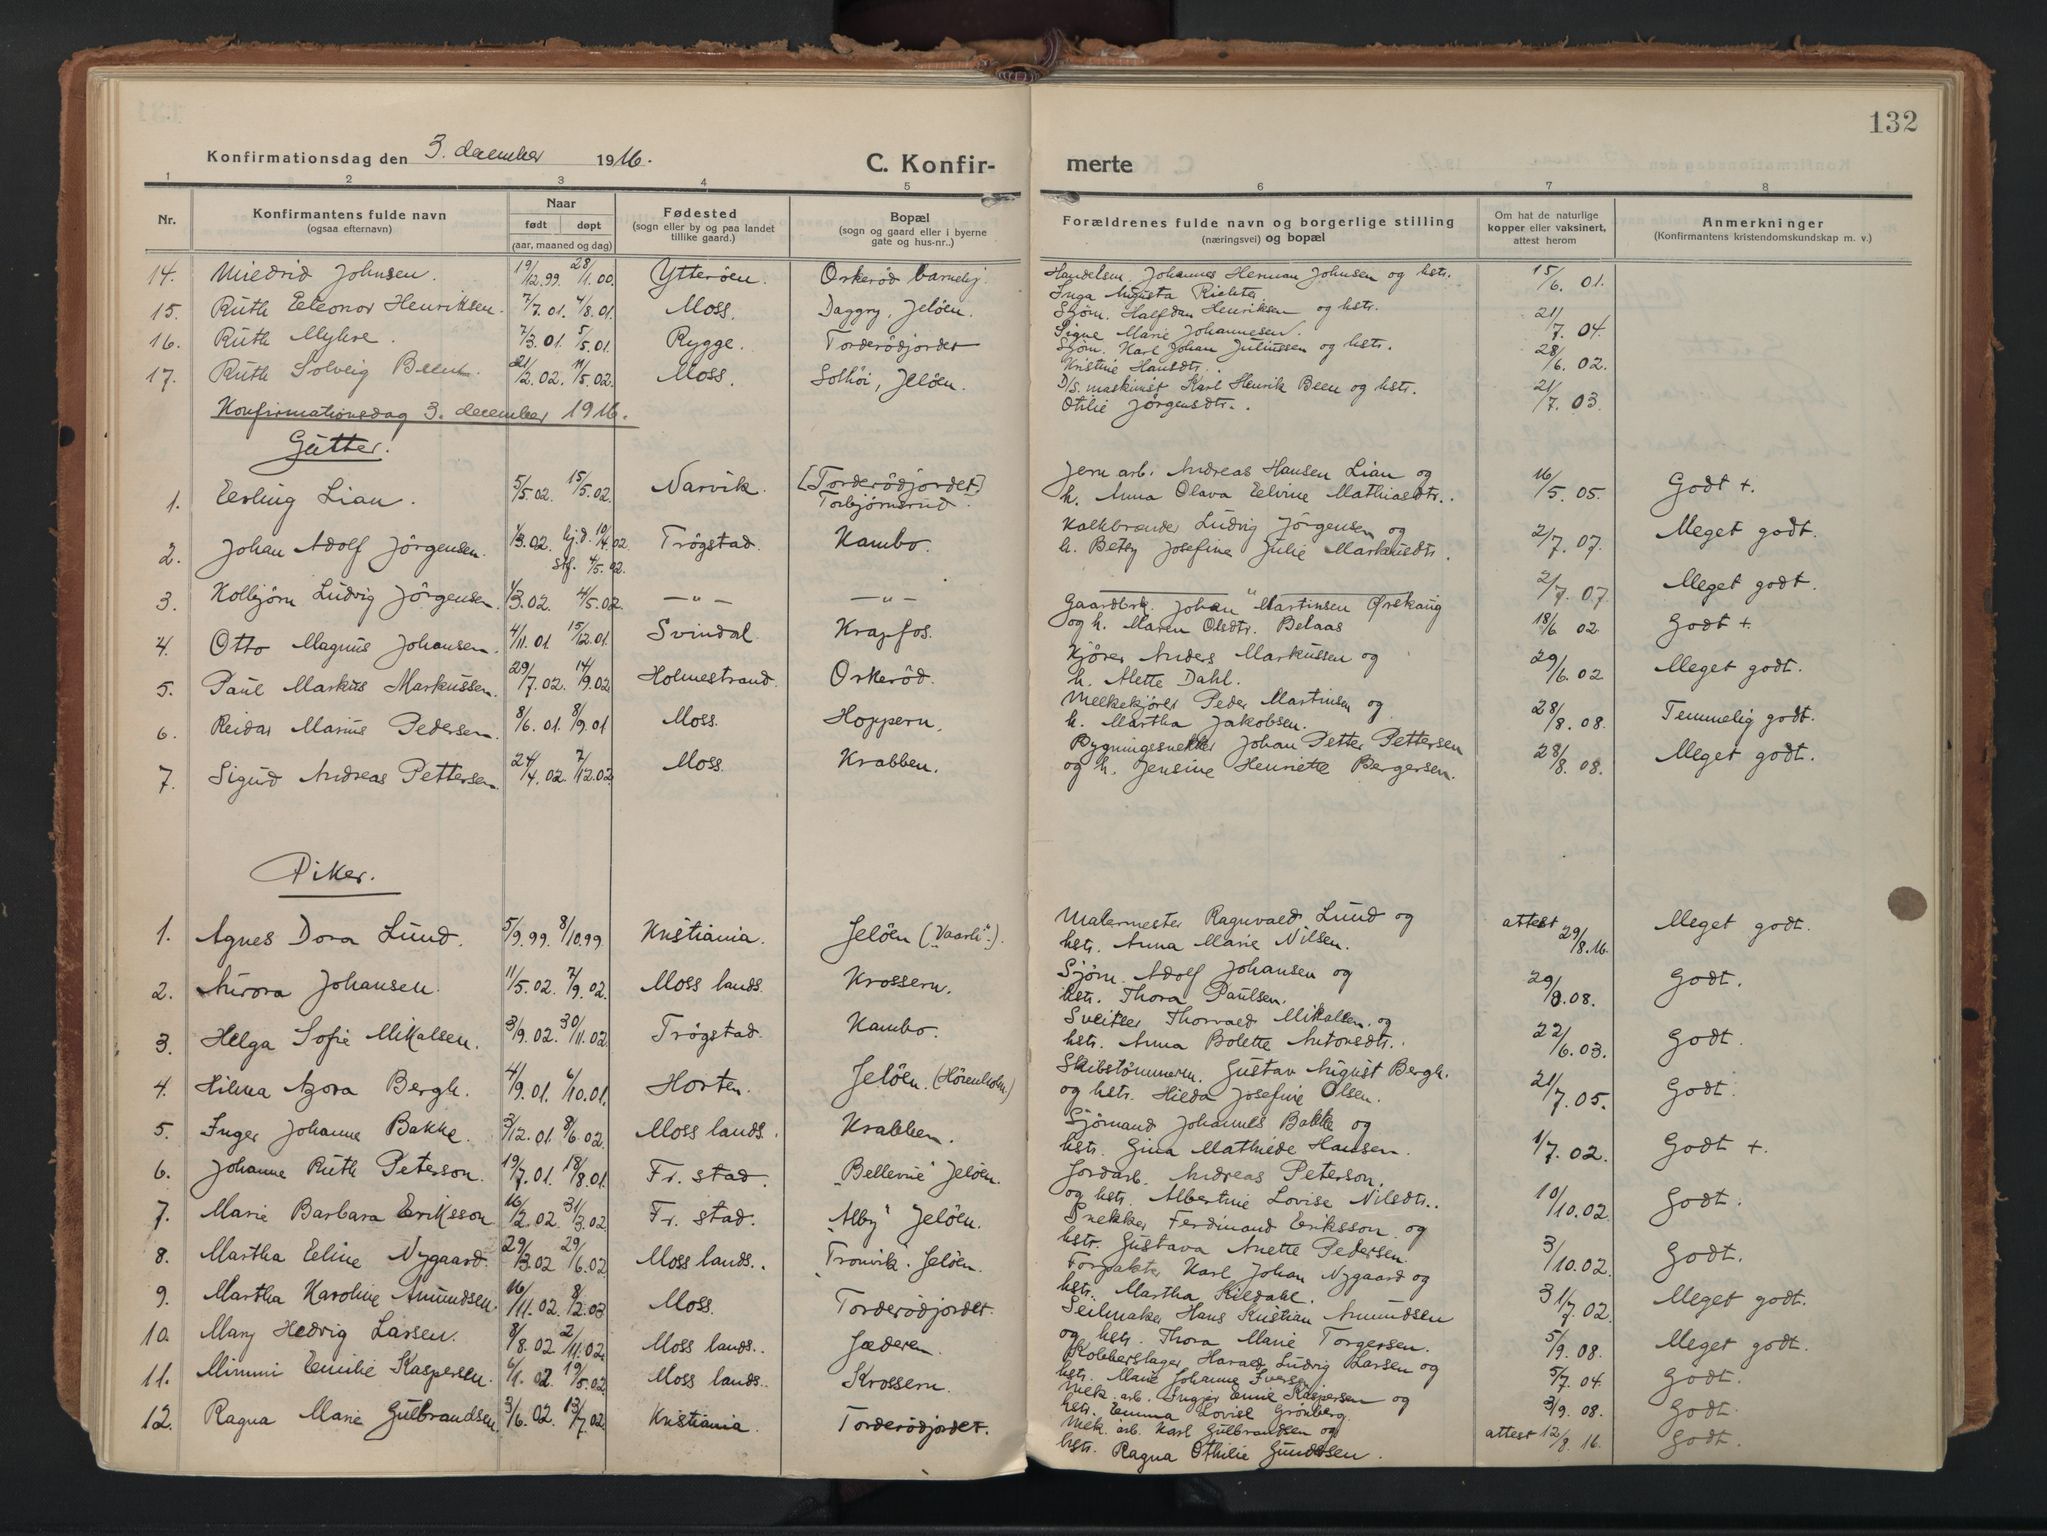 132
Konfirmationsdag den 3. december 1916.
C. Konfirmerte
1 2 3 4 5 6 7 8
Nr. | Konfirmantens fulde navn (ogsaa efternavn) | Naar født døpt (aar, maaned og dag) | Fødested (sogn eller by og paa landet tillike gaard.) | Bopæl (sogn og gaard eller i byerne gate og hus-nr..) | Forældrenes fulde navn og borgerlige stilling (næringsvei) og bopæl | Om hat de naturlige kopper eller vaksinert, attest herom | Anmerkninger (Konfirmantens kristendomskundskap m. v.)
14. Mildrid Johnsen. 19/12.99 28/1.00. Ytterøen. Orkerød barnehj. Handelsm. Johannes Herman Johnsen og hstr. Inga Augusta Richter 15/6. 01.
15. Ruth Eleonor Henriksen. 7/7.01. 4/8.01. Moss. Daggry, Jeløen. Sjøm. Halfdan Henriksen og hstr. Signe Marie Johannesen. 21/7. 04.
16. Ruth Myhre. 7/3.01. 5/5.01. Rygge. Torderødjordet Sjøm. Karl Johan Juliussen og hstr. Kristine Hansdtr. 28/6. 02.
17. Ruth Solveig Been. 21/2.02. 11/5.02. Moss. Solhøi, Jeløen. D/S. maskinist Karl Henrik Been og hstr. Otilie Jørgensdtr. 21/7. 03.
Konfirmationsdag 3. december 1916.
Gutter.
1. Erling Lian. 5/5.02. 15/5.02. Narvik. [Torderødjordet] Torbjørnsrud. Jern arb. Andreas Hansen Lian og h. Anna Olava Elvine Mathiasdtr. 16/5. 05. Godt +.
2. Johan Adolf Jörgensen. 1/3.02. hj.d. 10/4.02 stf. 4/5.02. Trøgstad. Kambo. Kalkbrænder Ludvig Jörgensen og h. Betsy Josefine Julie Markusdtr. 2/7. 07. Meget godt.
3. Kolbjørn Ludvig Jörgensen. 1/3.02. 4/5.02. —„— —„— —„— 2/7. 07. Meget godt.
4. Otto Magnus Johansen. 4/11.01. 15/12.01. Svindal. Krapfos. Gaardbrk. Johan Martinsen Ørskaug og h. Maren Olsdtr. Belaas 18/6 02. Godt +.
5. Paul Markus Markussen. 29/7.02. 14/9.02 Holmestrand. Orkerød. Kjører Anders Markussen og h. Alette Dahl. 29/6. 02 Meget godt.
6. Reidar Marius Pedersen. 8/6.01. 8/9.01 Moss. Hoppern. Melkekjører Peder Martinsen og h. Martha Jakobsen. 28/8. 08. Temmelig godt.
7. Sigurd Andreas Pettersen. 24/4.02. 7/12.02. Moss. Krabben. Bygningssnekker Johan Petter Pettersen og h. Jensine Henriette Bergersen. 28/8. 08. Meget godt.
Piker.
1. Agnes Dora Lund. 5/9.99. 8/10.99. Kristiania. Jeløen („Vaarli“). Malermester Ragnvald Lund og hstr. Anna Marie Nilsen. attest 29/8.16. Meget godt.
2. Aurora Johansen. 11/5.02. 7/9.02. Moss lands. Krossern. Sjøm. Adolf Johansen og hstr. Thora Paulsen. 29/8.08. Godt.
3. Helga Sofie Mikalsen. 3/9.02. 30/11.02 Trøgstad. Kambo. Sveitser Thorvald Mikalsen og hstr. Anna Bolette Antonsdtr. 22/6.03. Godt.
4. Hilma Azora Bergh. 4/9.01. 6/10.01. Horten. Jeløen. (Hønenholm) Skibstømmerm. Gustav August Bergh. og hstr. Hilda Josefine Olsen. 21/7.05. Godt.
5. Inger Johanne Bakke. 3/12.01. 8/6.02. Moss lands. Krabben. Sjømand Johannes Bakke og hstr. Gina Mathilde Hansen. 1/7. 02. Godt +.
6. Johanne Ruth Peterson. 19/7.01. 18/8.01. Fr. stad. „Bellevue“ Jeløen. Jordarb. Andreas Peterson. og hstr. Albertine Lovise Nilsdtr. 10/10.02. Godt.
7. Marie Barbara Eriksson. 16/2.02. 31/3.02 Fr. stad. „Alby“ Jeløen. Snekker Ferdinand Eriksson og hstr. Gustava Anette Pedersen. 3/10.02. Godt.
8. Martha Eline Nygaard. 29/3.02 29/6.02 Moss lands. „Tronvik“. Jeløen. Forpakter Karl Johan Nygaard og hstr. Martha Kildahl. 31/7. 02. Meget godt.
9. Martha Karoline Amundsen. 16/11.02. 8/2.03 Moss. Torderødjordet. Seilmaker Hans Kristian Amundsen og hstr. Thora Marie Torgersen. 5/9. 08. Meget godt.
10. Mary Hedvig Larsen. 8/8.02. 2/11.02. Moss lands. Jæderen. Kobberslager Harald Ludvig Larsen og hstr. Marie Johanne Iversen. 5/7. 04. Godt.
11. Mimmi Emilie Kaspersen. 6/1.02. 19/5.02. Moss lands. Krossern. Mek. arb. Kaspersen og hstr. Emma Lovise Grønberg. 3/9. 08. Godt.
12. Ragna Marie Gulbrandsen. 3/6.02. 13/7.02. Kristiania. Torderødjordet. Mek. arb. Karl Gulbrandsen og hstr. Ragna Othilie Gundersen. attest 12/8. 16. Godt.